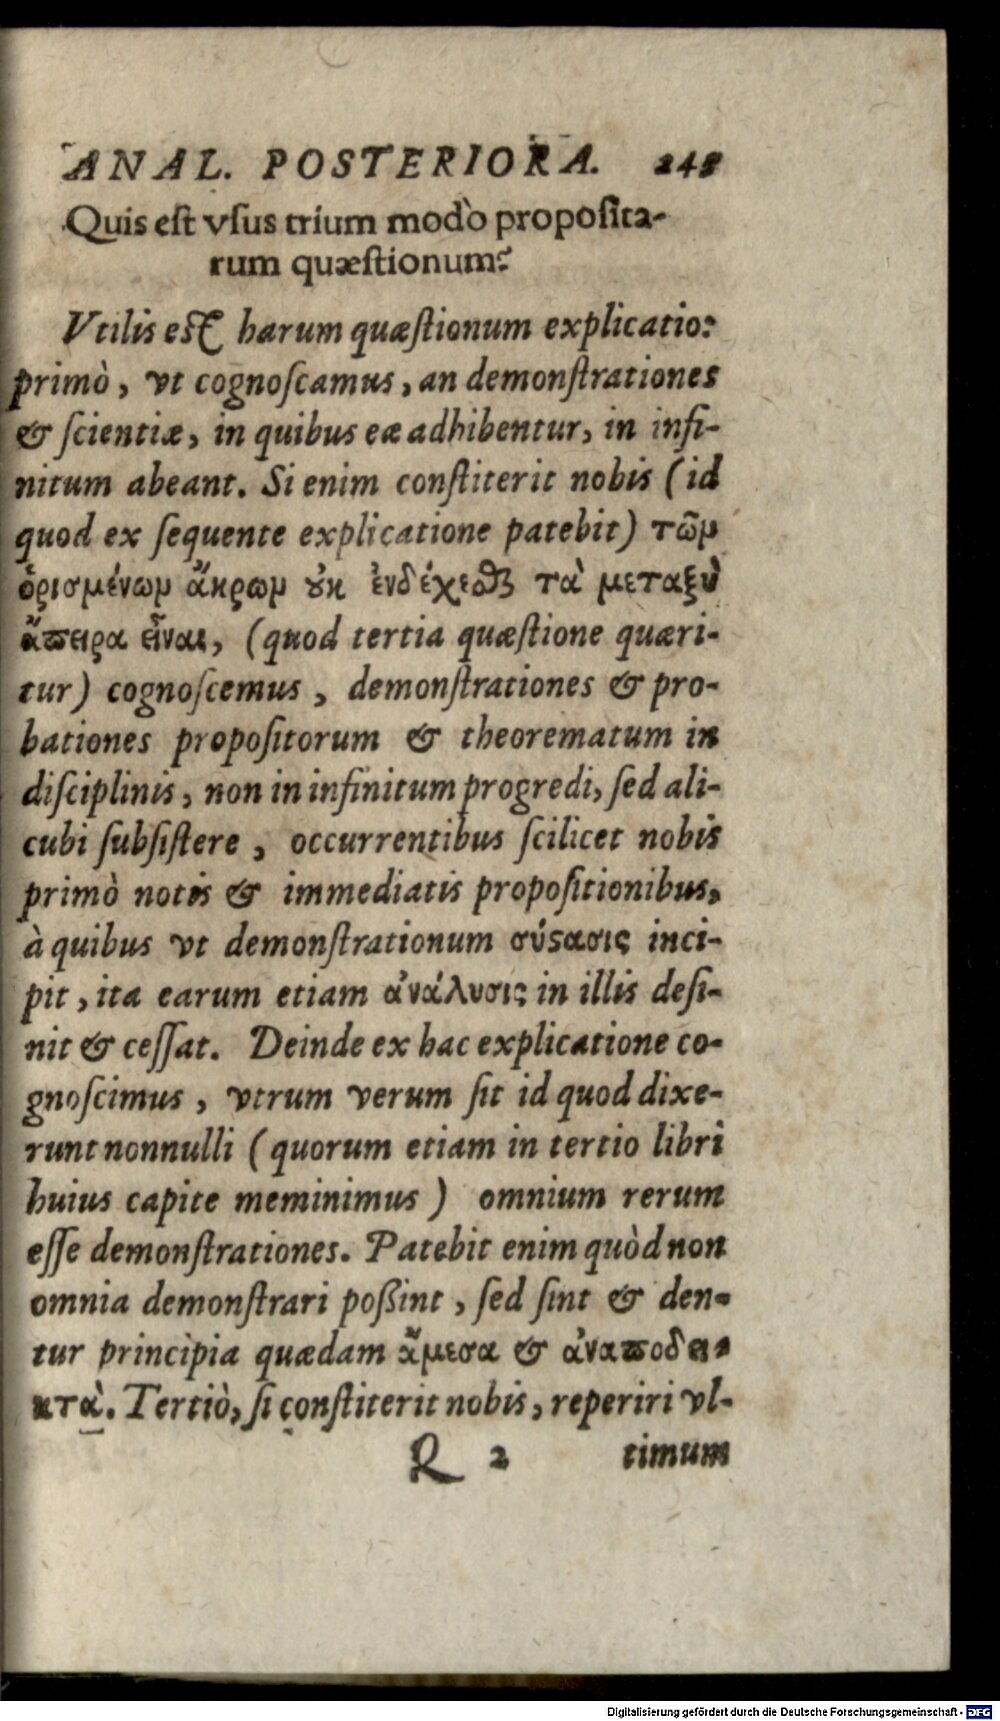 ANAL. POSTERIORA. 245
Quis est vsus trium modò proposita-
rum quæstionum?
Vtilis est harum quæstionum explicatio:
primò, vt cognoscamus, an demonstrationes
& scientiæ, in quibus eæ adhibentur, in infi-
nitum abeant. Si enim constiterit nobis (id
quod ex sequente explicatione patebit) τῶν
ὁρισμένων ἄκρων οὐκ ἐνδέχεσθαι τὰ μεταξὺ
ἄπειρα εἶναι, (quod tertia quæstione quæri-
tur) cognoscemus, demonstrationes & pro-
bationes propositorum & theorematum in
disciplinis, non in infinitum progredi, sed ali-
cubi subsistere, occurrentibus scilicet nobis
primò notis & immediatis propositionibus,
à quibus vt demonstrationum σύστασις inci-
pit, ita earum etiam ἀνάλυσις in illis desi-
nit & cessat. Deinde ex hac explicatione co-
gnoscimus, vtrum verum sit id quod dixe-
runt nonnulli (quorum etiam in tertio libri
huius capite meminimus) omnium rerum
esse demonstrationes. Patebit enim quòd non
omnia demonstrari possint, sed sint & den-
tur principia quædam ἄμεσα & ἀναποδει-
κτὰ. Tertiò, si constiterit nobis, reperiri vl-
R 2 timum
Digitalisierung gefördert durch die Deutsche Forschungsgemeinschaft - DFG